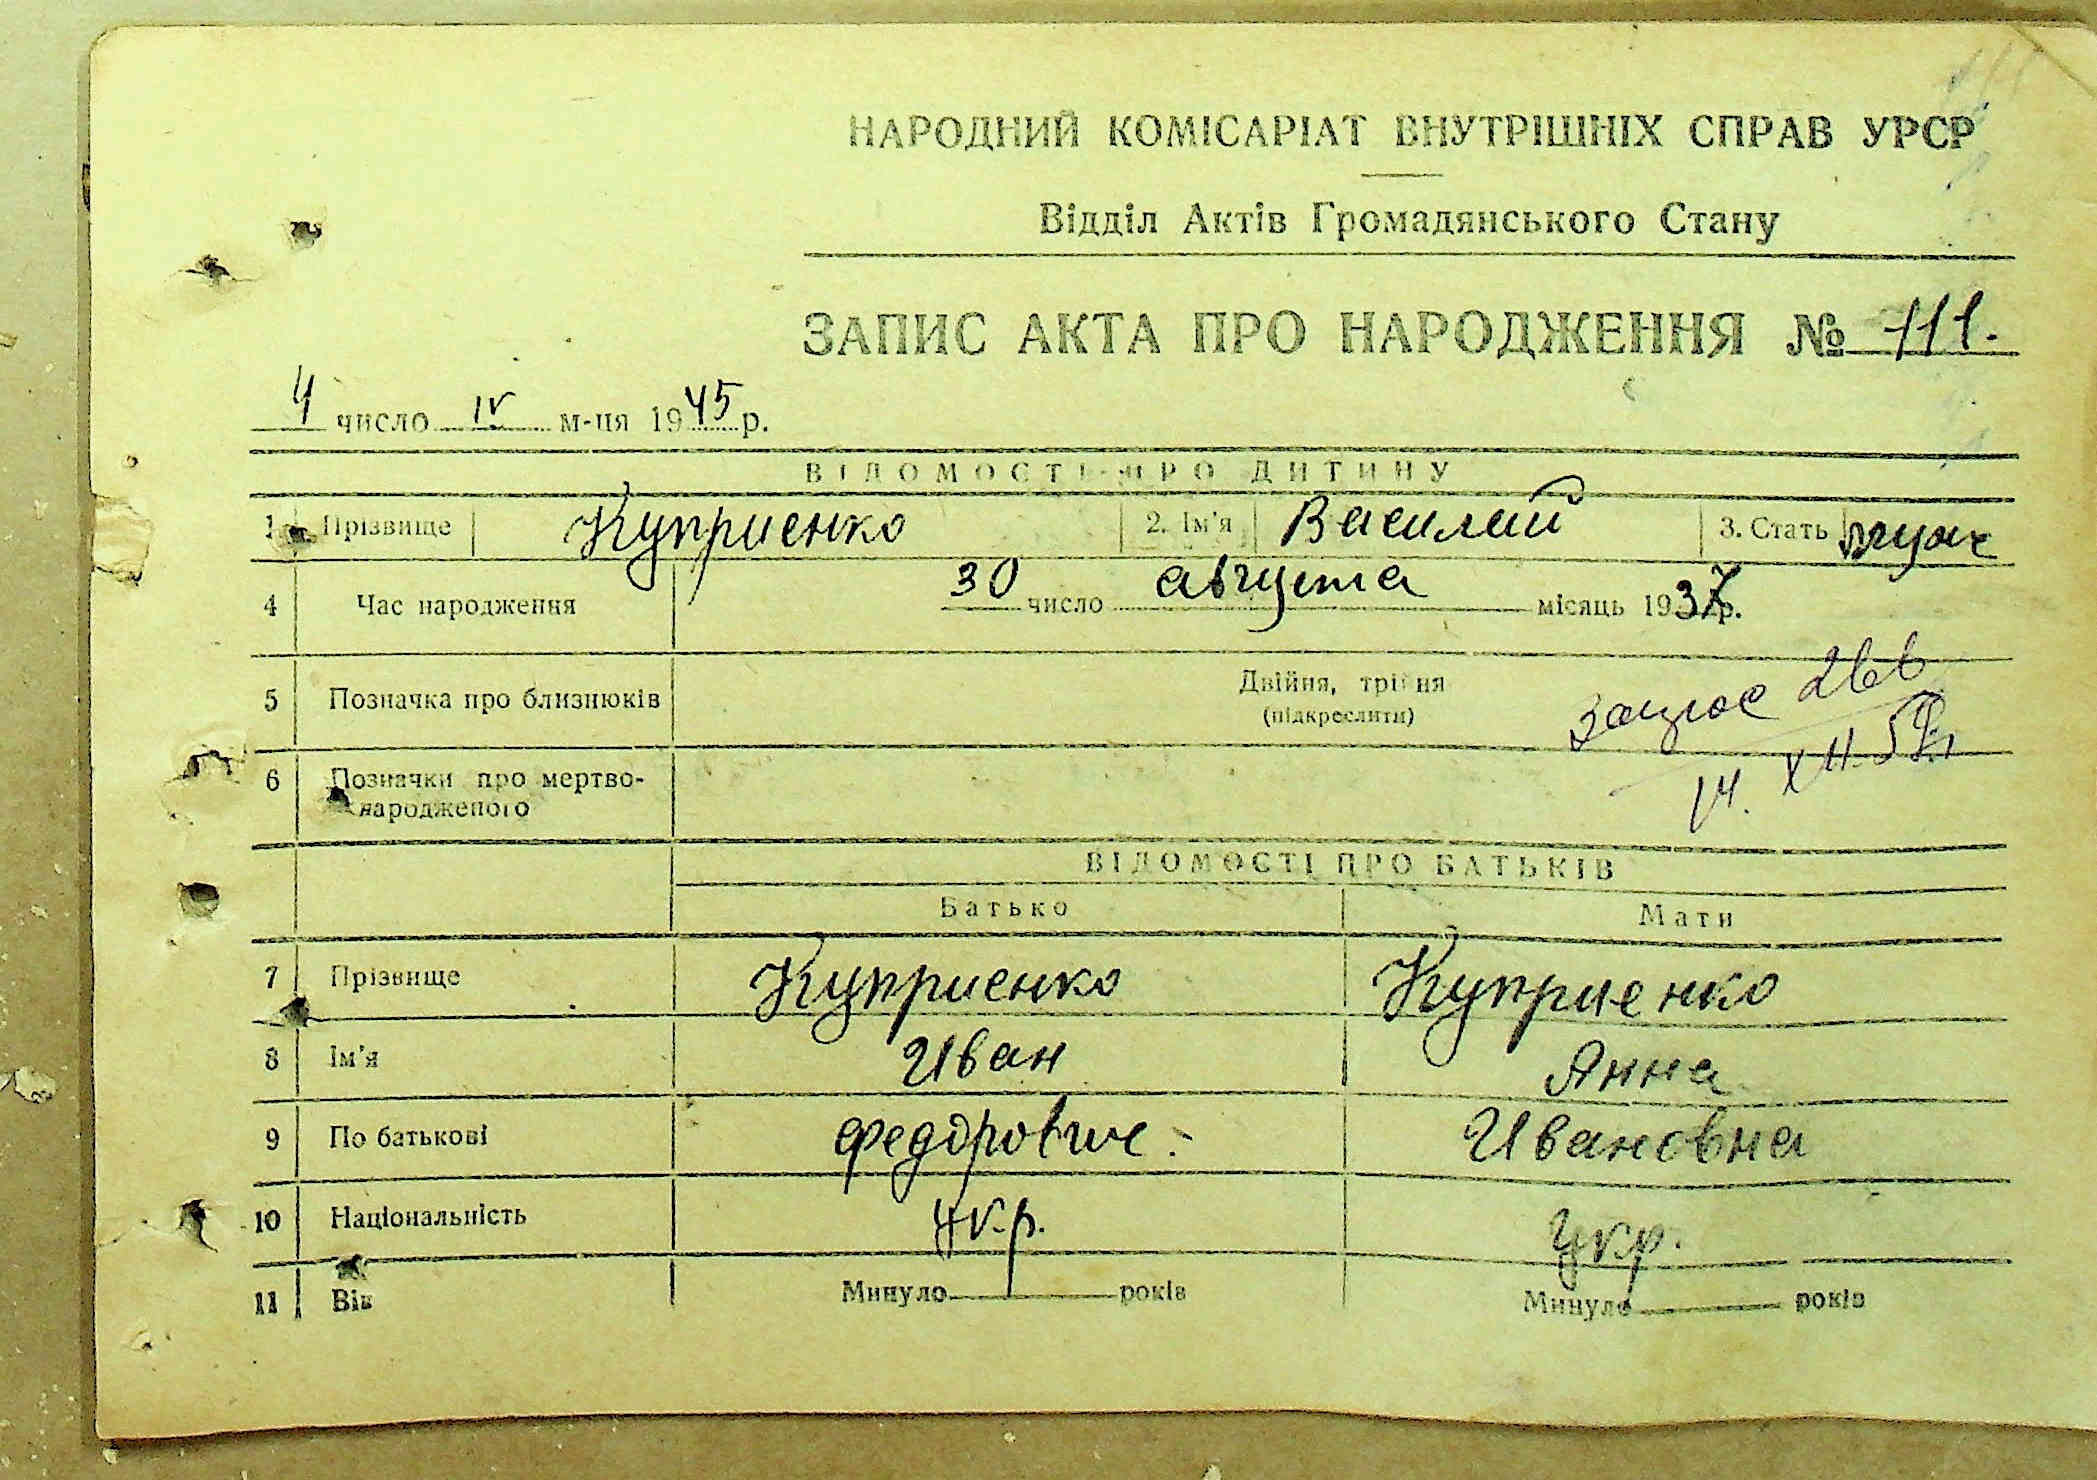 НАРОДНИЙ КОМІСАРІАТ ВНУТРІШНІХ СПРАВ УРСР
Відділ Актів Громадянського Стану
ЗАПИС АКТА ПРО НАРОДЖЕННЯ № 111.
4 число IV м-ця 1945 р.
ВІДОМОСТІ ПРО ДИТИНУ
1 Прізвище Куприенко 2. Ім'я Василий 3. Стать муж
4 Час народження 30 число августа місяць 1937 р.
5 Позначка про близнюків Двійня, трійня
(підкреслити)
14. XII.
6 Позначки про мертво-
народженого
ВІДОМОСТІ ПРО БАТЬКІВ
Батько Мати
7 Прізвище Куприенко Куприенко
8 Ім'я Иван Анна
9 По батькові Федорович. Ивановна
10 Національність Укр. Укр.
11 Вік Минуло років Минуло років